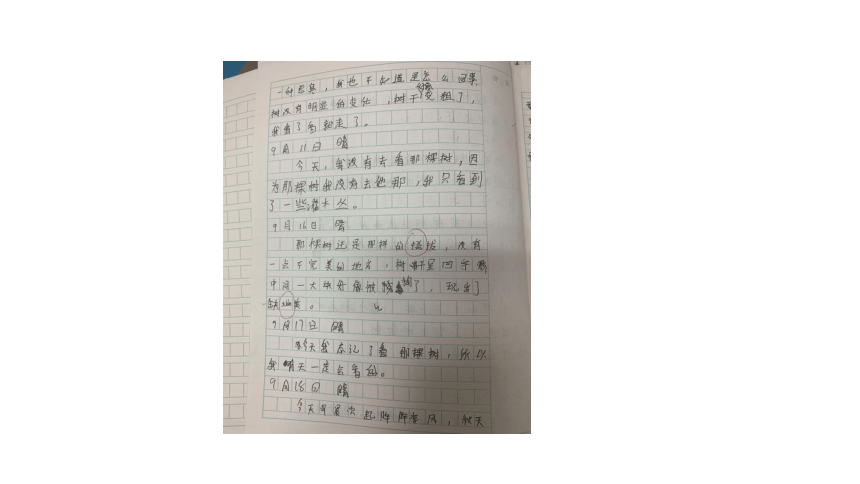 一种思寞，我也不知道是怎么回事，
树没有明显的变化，树干变粗了，
我看了看就走了。
9月11日 晴
今天，我没有去看那棵树，因
为那棵树我没有去她那，我只看到
了一些灌木丛。
9月16日 晴
那棵树还是那样的挺拔，没有
一点不完美的地方，树呈凹字形
中间一大块好像被掏了，现出了
9月17日 晴
今天我忘记了看那棵树，所以
我明天一定去看她。
9月18日 晴
今天早晨 起阵阵凉风，秋天